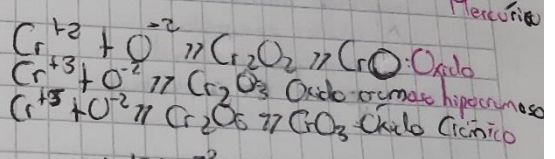 Mercurico
Cr+2 + O-2 » Cr2O2 » CrO: Oxido
Cr+3 + O-2 » Cr2O3 Oxido cromoso hipocromoso
Cr+5 + O-2 » Cr2O6 » CrO3 Oxido Crómico